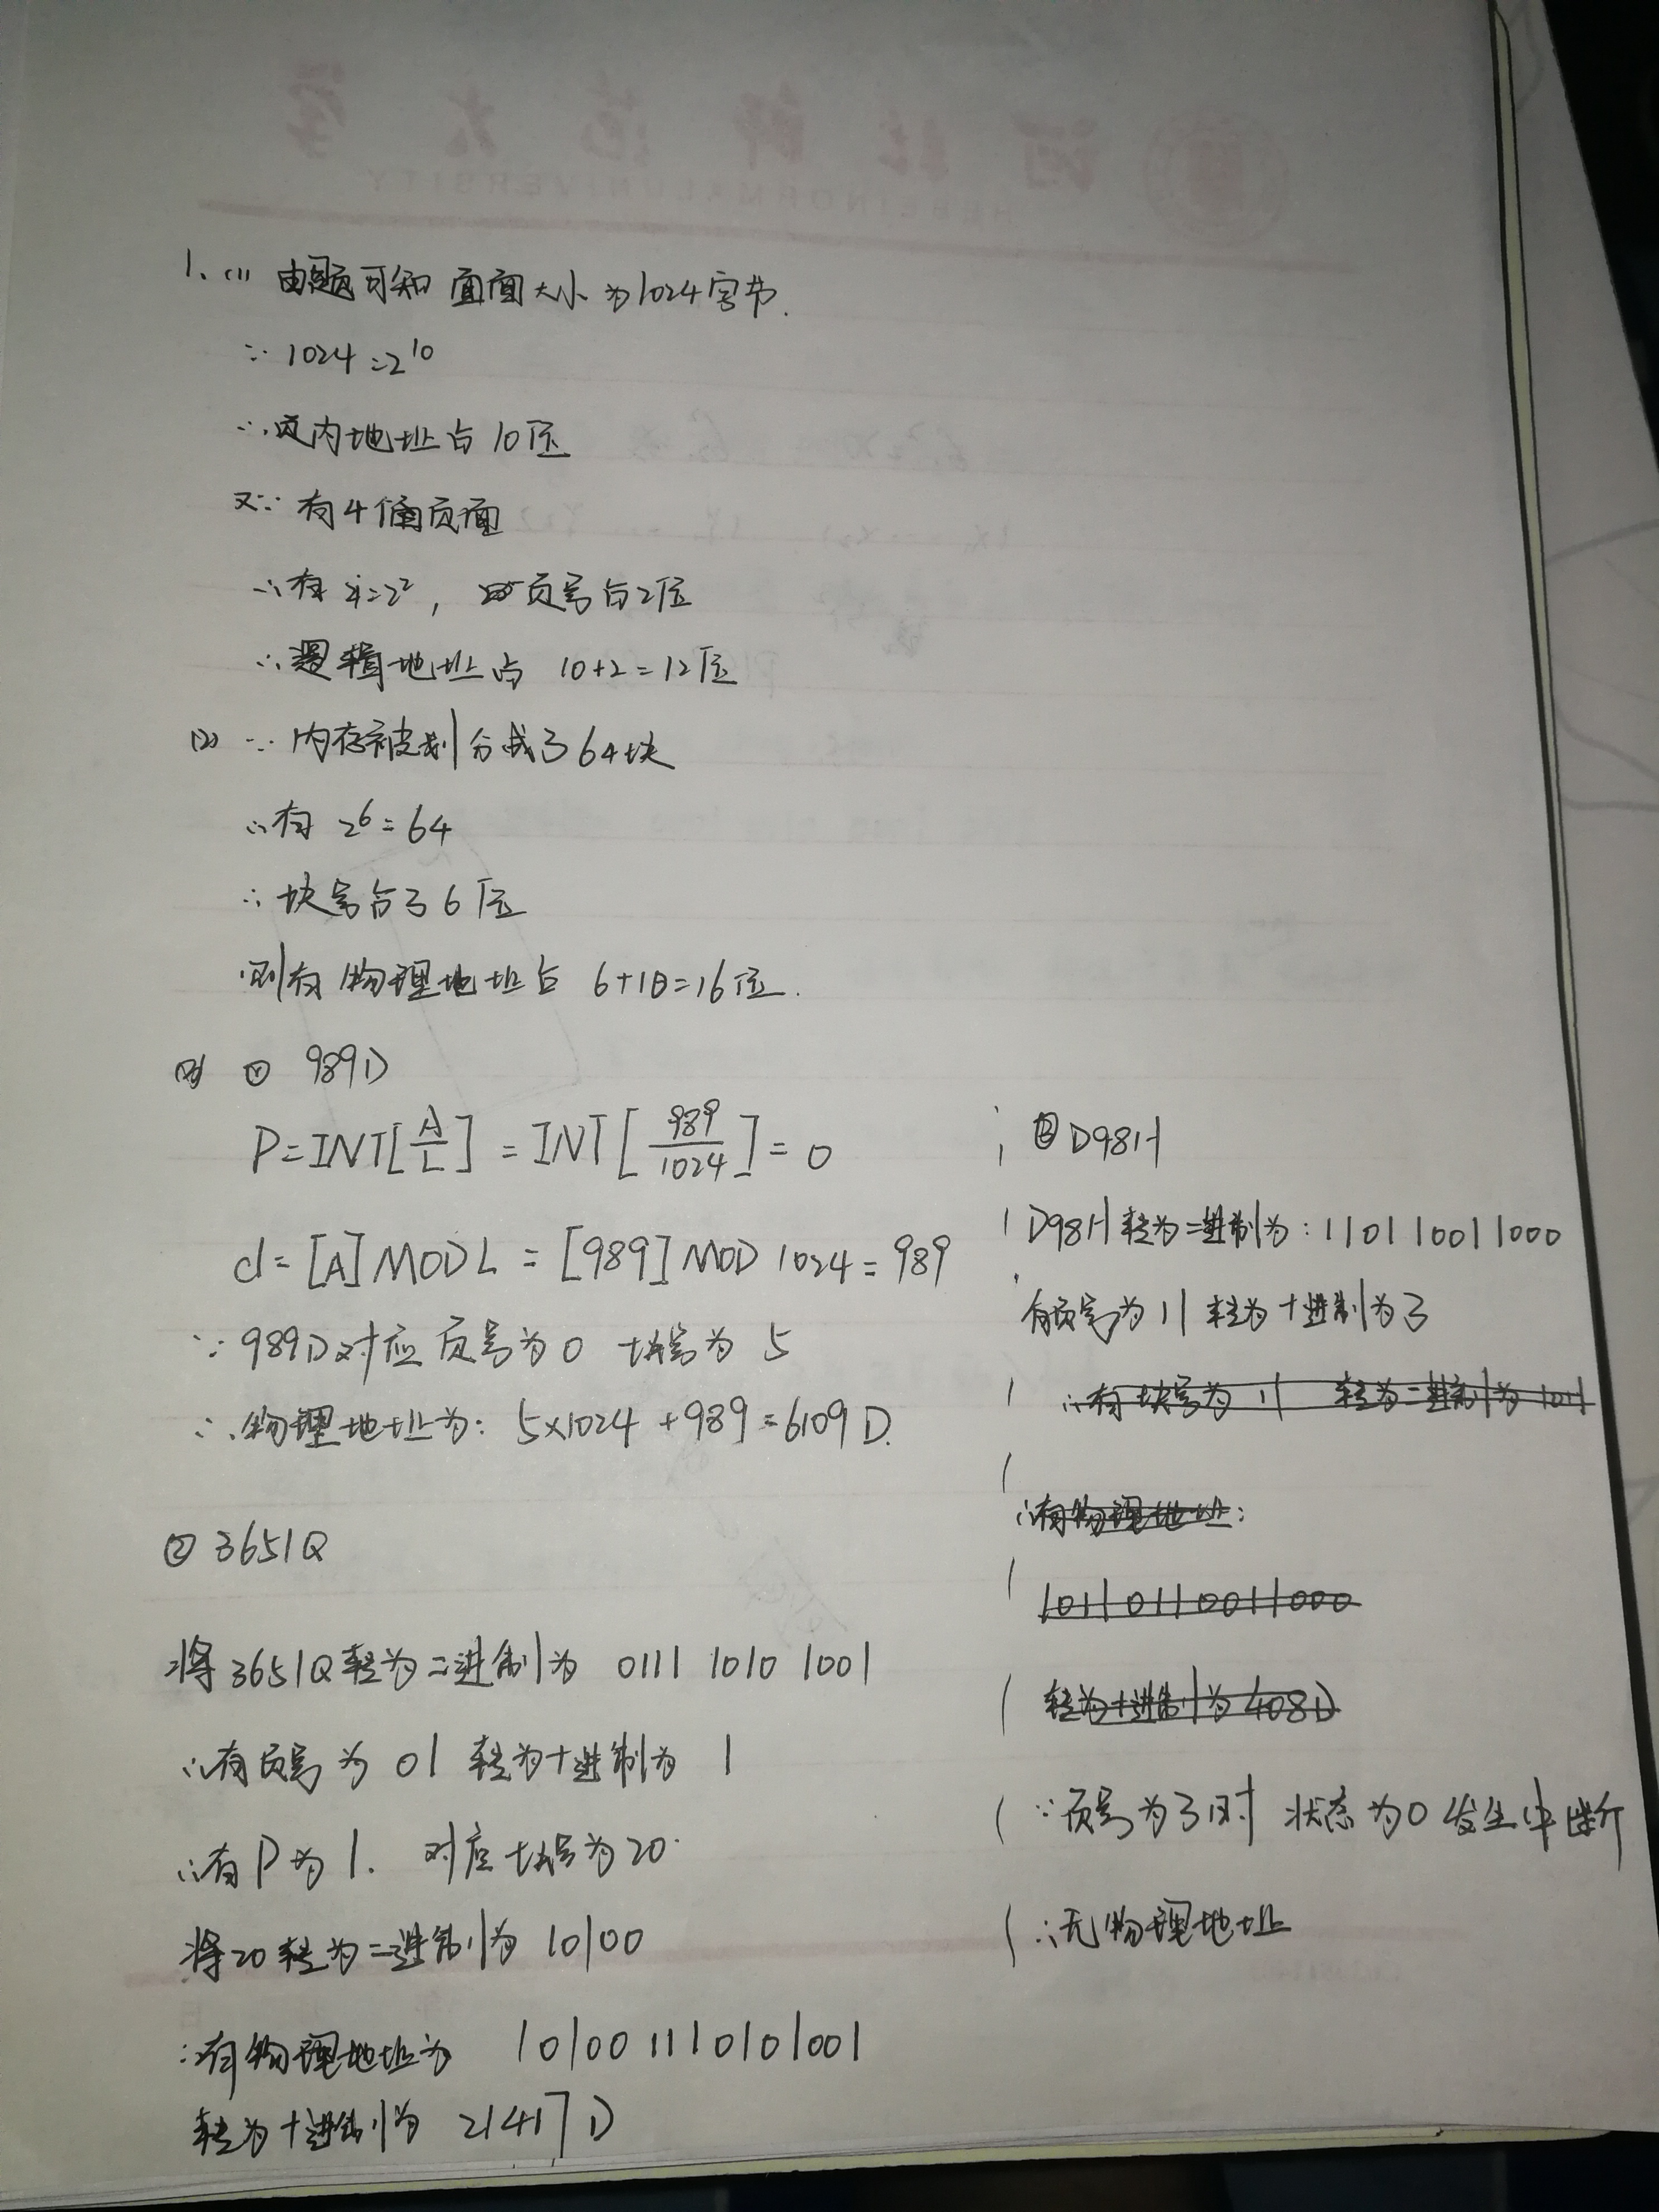 河北师范大学
HEBEI NORMAL UNIVERSITY
1、(1) 由题可知 页面大小为1024字节.
∵ 1024=2^10
∴页内地址占10位
又∵ 有4个页面
∴有 4=2^2, 页号占2位
∴逻辑地址占 10+2=12位
(2) ∵ 内存被划分成了64块
∴有 2^6=64
∴块号占了6位
则有物理地址占 6+10=16位.
① 989D
P=INT[A/L]=INT[989/1024]=0
d=[A]MOD L=[989]MOD 1024=989
∵989D对应页号为0 块号为5
∴物理地址为: 5×1024+989=6109D.
② 3651Q
将3651Q转为二进制为 0111 1010 1001
∴有页号为 01 转为十进制为 1
∴有P为1. 对应块号为20.
将20转为二进制为 10100
∴有物理地址为 101001110101001
转为十进制为 21417D
③D98H
D98H转为二进制为:110110011000
有页号为11 转为十进制为3
∴有块号为11 转为二进制为1011
∴有物理地址:
1011 0110011000
转为十进制为408D
∵页号为3时 状态为0发生中断
∴无物理地址